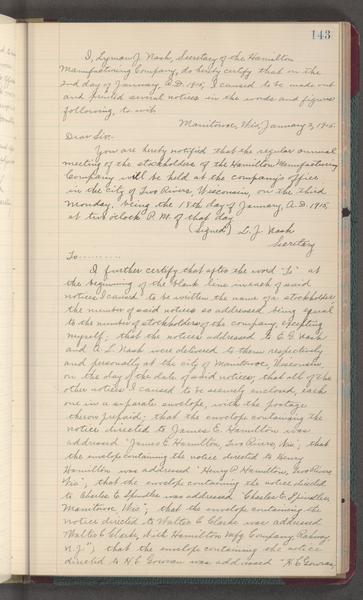 143
I, Lyman J. Nash, Secretary of the Hamilton
Manufacturing Company, do hereby certify that on the
2nd day of January, A.D. 1915, I caused to be made out
and printed several notices in the words and figures
following, to wit:
Manitowoc, Wis, January 2, 1915.
Dear Sir:
You are hereby notified that the regular annual
meeting of the stockholders of the Hamilton Manufacturing
Company will be held at the company's office
in the city of Two Rivers, Wisconsin, on the third
Monday, being the 18th day of January, A.D. 1915
at two o'clock P.M. of that day
(Signed) L. J. Nash
Secretary
To..........
I further certify that after the word "To" at
the beginning of the blank line in each of said
notices I caused to be written the name of a stockholder,
the number of said notices so addressed being equal
to the number of stockholders of the company, excepting
myself; that the notices addressed to E. G. Nash
and A. L. Nash were delivered to them respectively
and personally at the city of Manitowoc, Wisconsin
on the day of the date of said notices; that all of the
other notices I caused to be securely enclosed, each
one in a separate envelope, with the postage
thereon prepaid; that the envelope containing the
notice directed to James E. Hamilton was
addressed "James E. Hamilton, Two Rivers, Wis"; that
the envelope containing the notice directed to Henry
Hamilton was addressed "Henry P. Hamilton, Two Rivers
Wis"; that the envelope containing the notice directed
to Charles E. Spindler was addressed "Charles E. Spindler,
Manitowoc, Wis"; that the envelope containing the
notice directed to Walter E. Clarke was addressed
Walter E. Clarke, with Hamilton Mfg Company, Rahway,
N.J."; that the envelope containing the notice
directed to H. C. Gowran was addressed "H. C. Gowran,